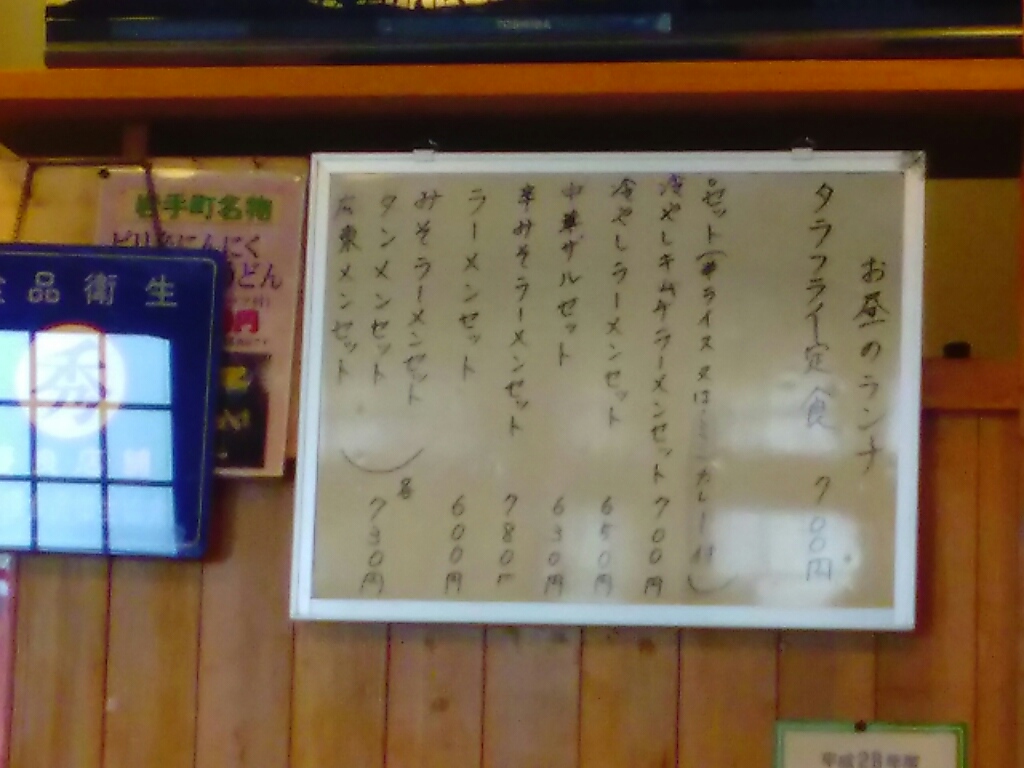 TOSHIBA
お昼のランチ
タラフライ定食 700円
セット(半ライス又はミニカレー付)
冷やしキムチラーメンセット 700円
冷やしラーメンセット 650円
中華ザルセット 630円
辛みそラーメンセット 780円
ラーメンセット 600円
みそラーメンセット
タンメンセット
広東メンセット
各730円
岩手町名物
ピリ辛にんにく
うどん
円
品衛生
秀
平成28年度